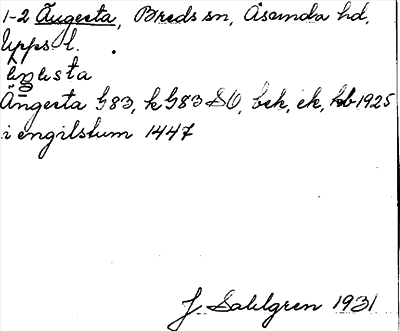 1-2 Ängesta, Breds sn, Åsunda hd,
Upps l.
ängesta
Ängesta G83, k G83 SO, bek, ek, hb 1925
i engilstum 1447
J Sahlgren 1931